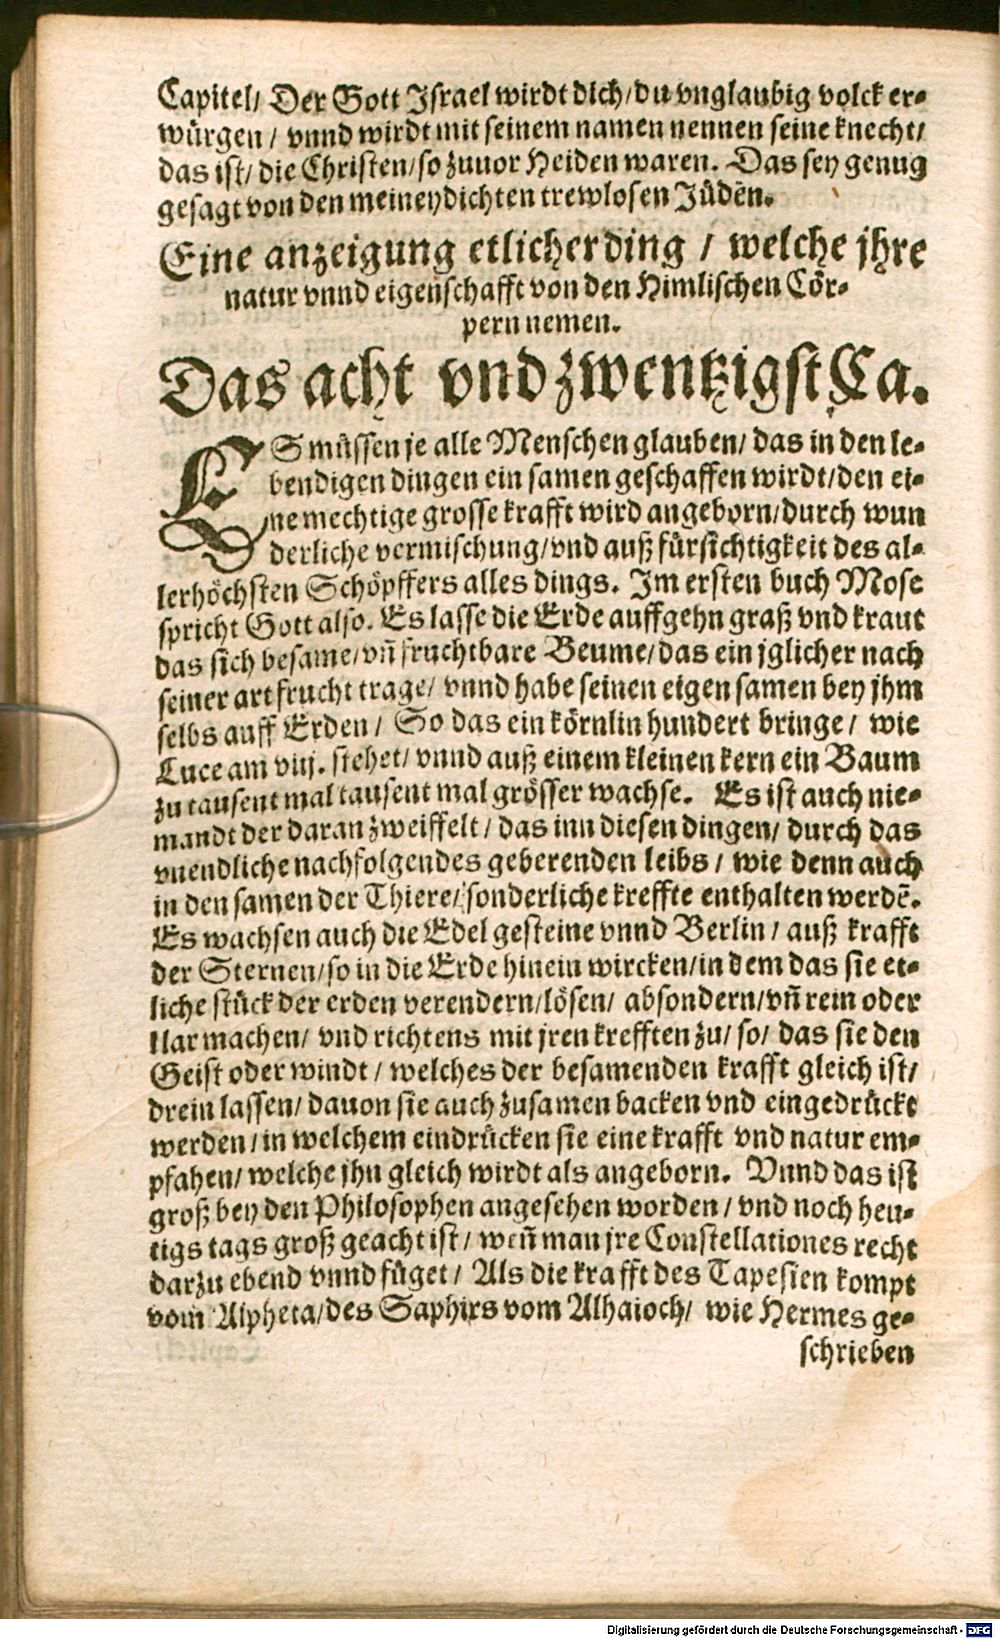 Capitel/ Der Gott Jsrael wirdt dich/du vnglaubig volck er-
würgen/ vnnd wirdt mit seinem namen nennen seine knecht/
das ist/ die Christen/ so zuuor Heiden waren. Das sey genug
gesagt von den meineydichten trewlosen Jüdēn.
Eine anzeigung etlicher ding / welche jhre
natur vnnd eigenschafft von den Himlischen Cör-
pern nemen.
Das acht vnd zwentzigst Ca.
ES müssen je alle Menschen glauben/ das in den le-
bendigen dingen ein samen geschaffen wirdt/den ei-
ne mechtige grosse krafft wird angeborn/durch wun
derliche vermischung/vnd auß fürsichtigkeit des al-
lerhöchsten Schöpffers alles dings. Jm ersten buch Mose
spricht Gott also. Es lasse die Erde auffgehn graß vnd kraut
das sich besame/vn̄ fruchtbare Beume/das ein jglicher nach
seiner art frucht trage/ vnnd habe seinen eigen samen bey jhm
selbs auff Erden/ So das ein körnlin hundert bringe/ wie
Luce am viij. stehet/ vnnd auß einem kleinen kern ein Baum
zu tausent mal tausent mal grösser wachse. Es ist auch nie-
mandt der daran zweiffelt/ das inn diesen dingen/ durch das
vnendliche nachfolgendes geberenden leibs/ wie denn auch
in den samen der Thiere/ sonderliche kreffte enthalten werdē.
Es wachsen auch die Edel gesteine vnnd Berlin/ auß krafft
der Sternen/so in die Erde hinein wircken/in dem das sie et-
liche stück der erden verendern/lösen/ absondern/vn̄ rein oder
klar machen/ vnd richtens mit jren krefften zu/ so/ das sie den
Geist oder windt/ welches der besamenden krafft gleich ist/
drein lassen/ dauon sie auch zusamen backen vnd eingedrückt
werden/in welchem eindrücken sie eine krafft vnd natur em-
pfahen/ welche jhn gleich wirdt als angeborn. Vnnd das ist
groß bey den Philosophen angesehen worden/ vnd noch heu-
tigs tags groß geacht ist/ wen̄ man jre Constellationes recht
darzu ebend vnnd füget/ Als die krafft des Tapesien kompt
vom Alpheta/des Saphirs vom Alhaioch/ wie Hermes ge-
schrieben
Digitalisierung gefördert durch die Deutsche Forschungsgemeinschaft - DFG